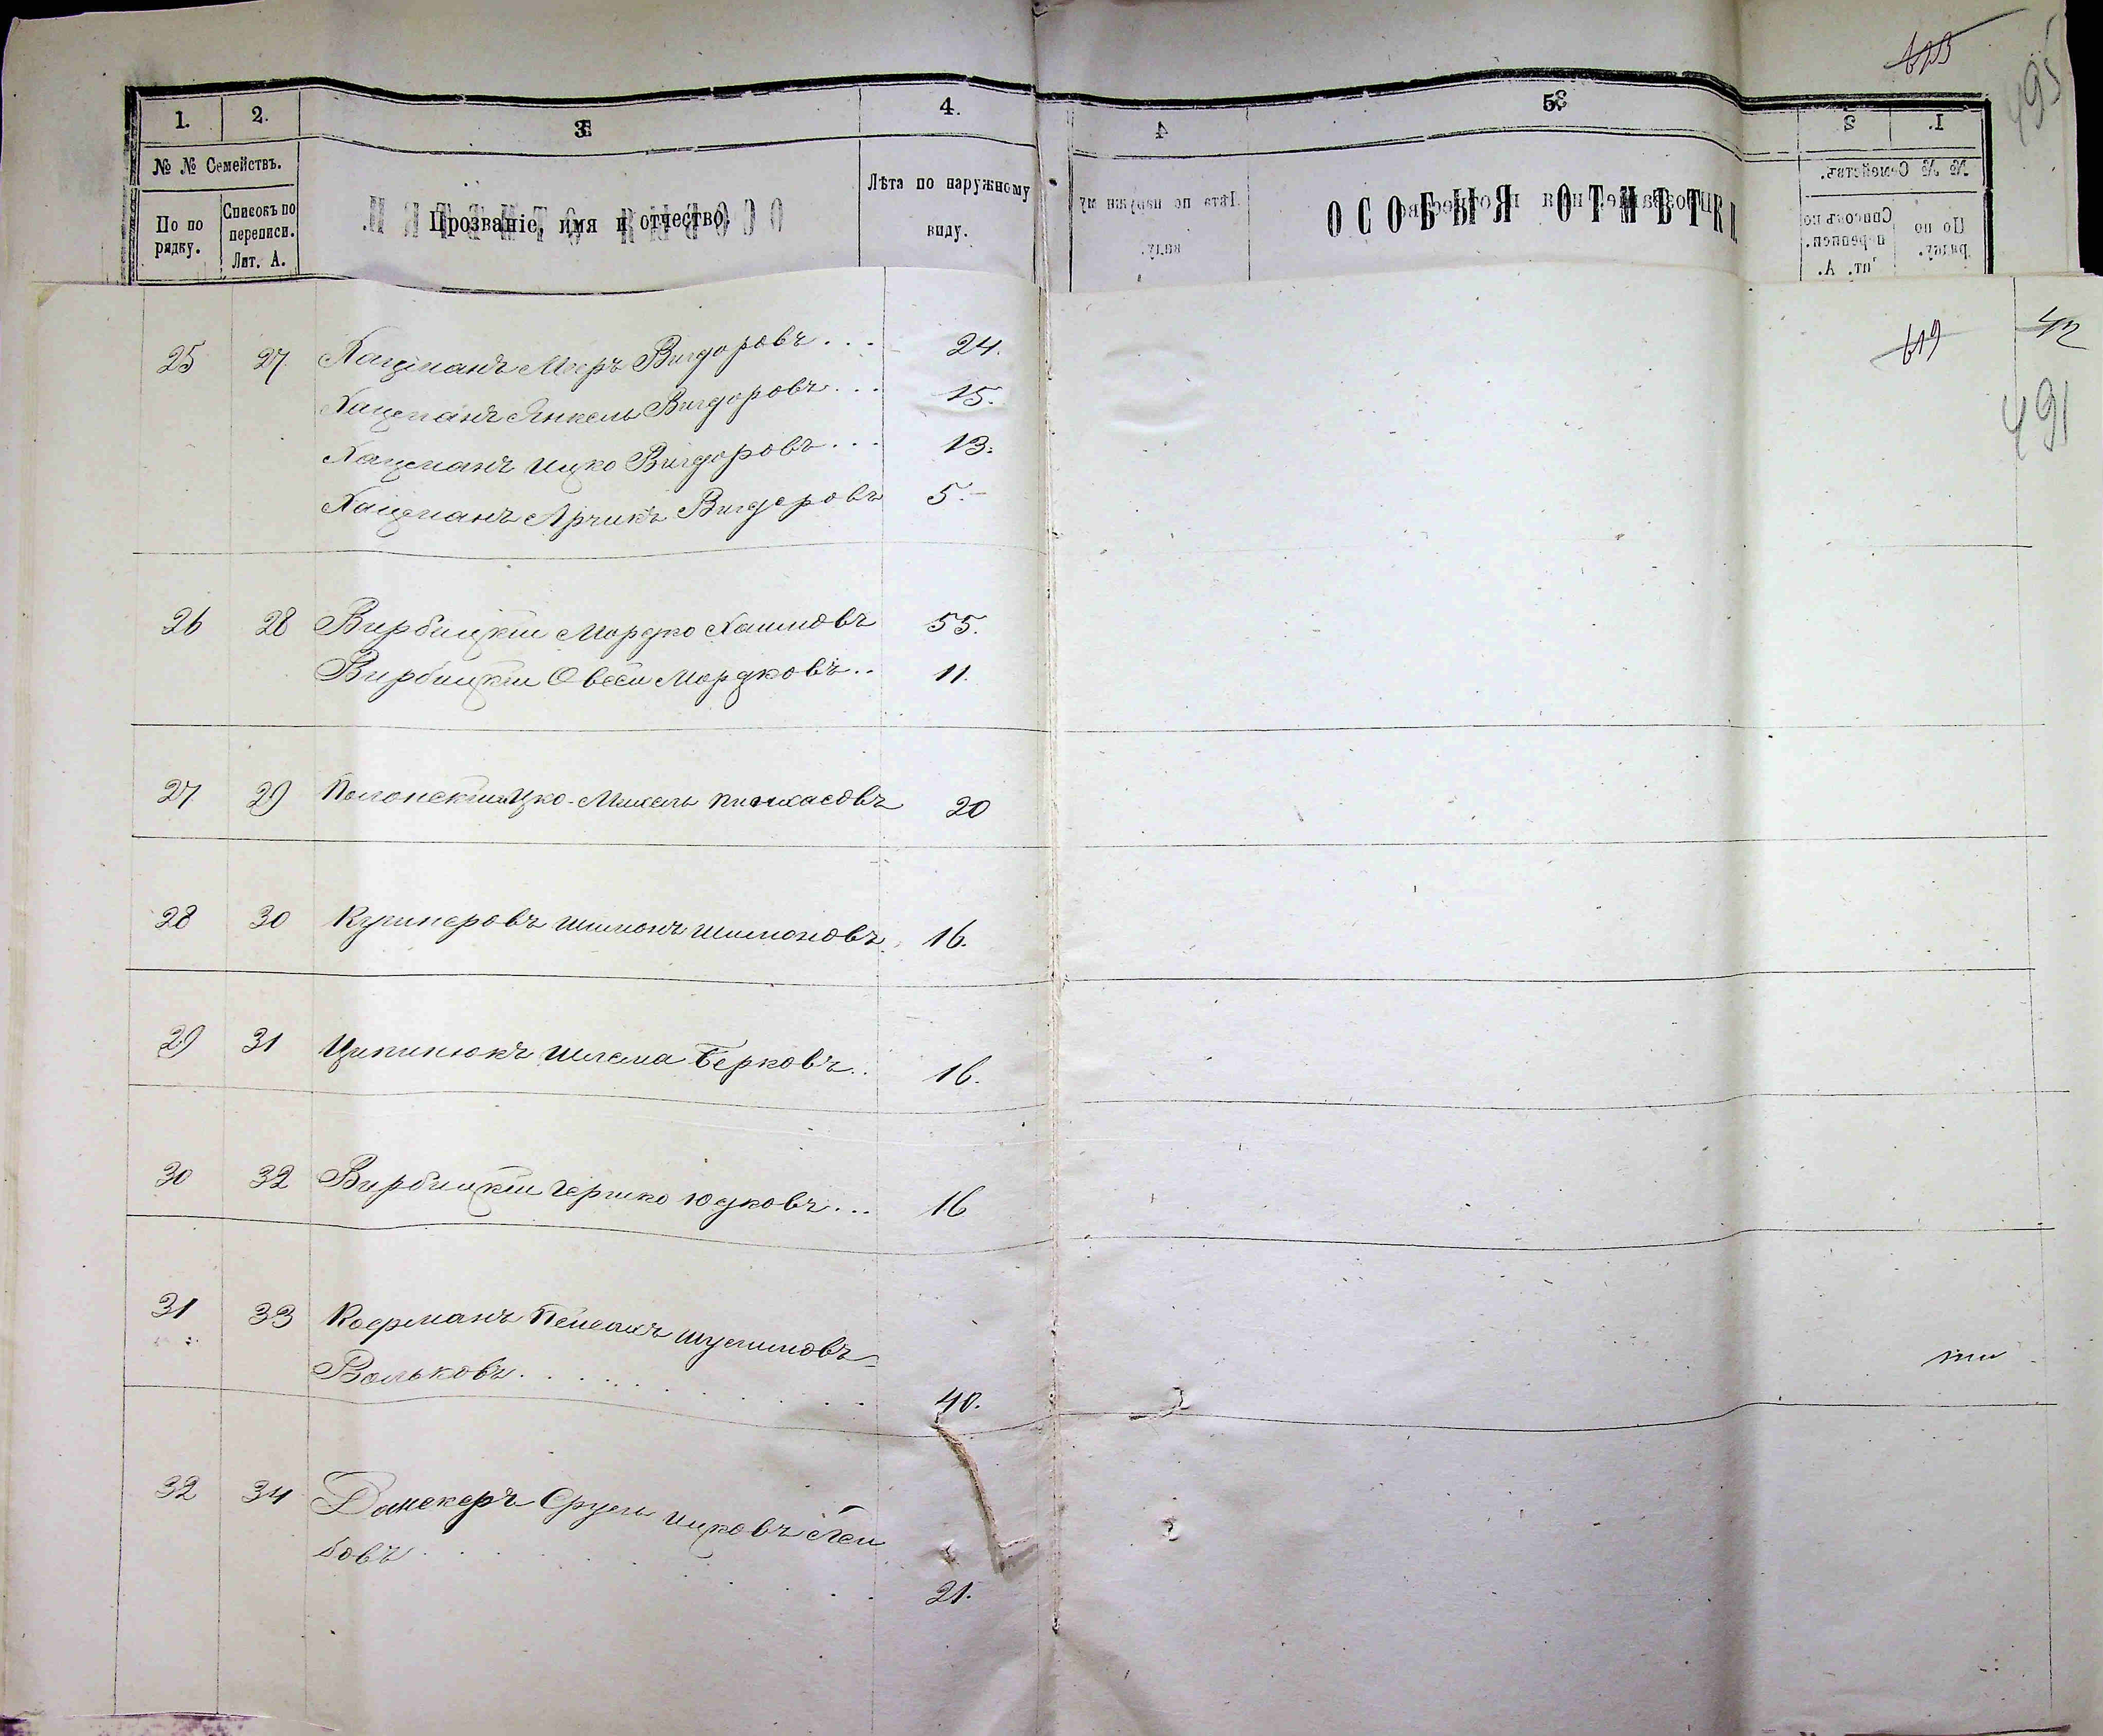 623
495
1. 2. 3. 4. 5.
№ № Семействъ.
По по рядку.
Списокъ по переписи. Лит. А.
Прозваніе, имя и отчество.
Лѣта по наружному виду.
ОСОБЫЯ ОТМѢТКИ
619
42
491
25 27. Кацманъ Меръ Вигдоровъ... 24.
Кацманъ Янкель Вигдоровъ... 15.
Кацманъ Ицко Вигдоровъ... 13.
Кацманъ Арчикъ Вигдоровъ 5.-
26 28 Вирбицкій Мордко Хаимовъ 55.
Вирбицкій Овсей Мордковъ.. 11.
27 29 Полонскій Ицко-Михель Пинхасовъ 20
28 30 Кушнеровъ Шимонъ Шимоновъ. 16.
29 31 Ципинюкъ Шлема Берковъ.. 16.
30 32 Вирбицкій Гершко Юдковъ... 16
31 33 Кофманъ Пейсахъ Шулимовъ-
Вольковъ. 40.
32 34 Данскеръ Сруль Ицковъ Лей
бовъ 21.